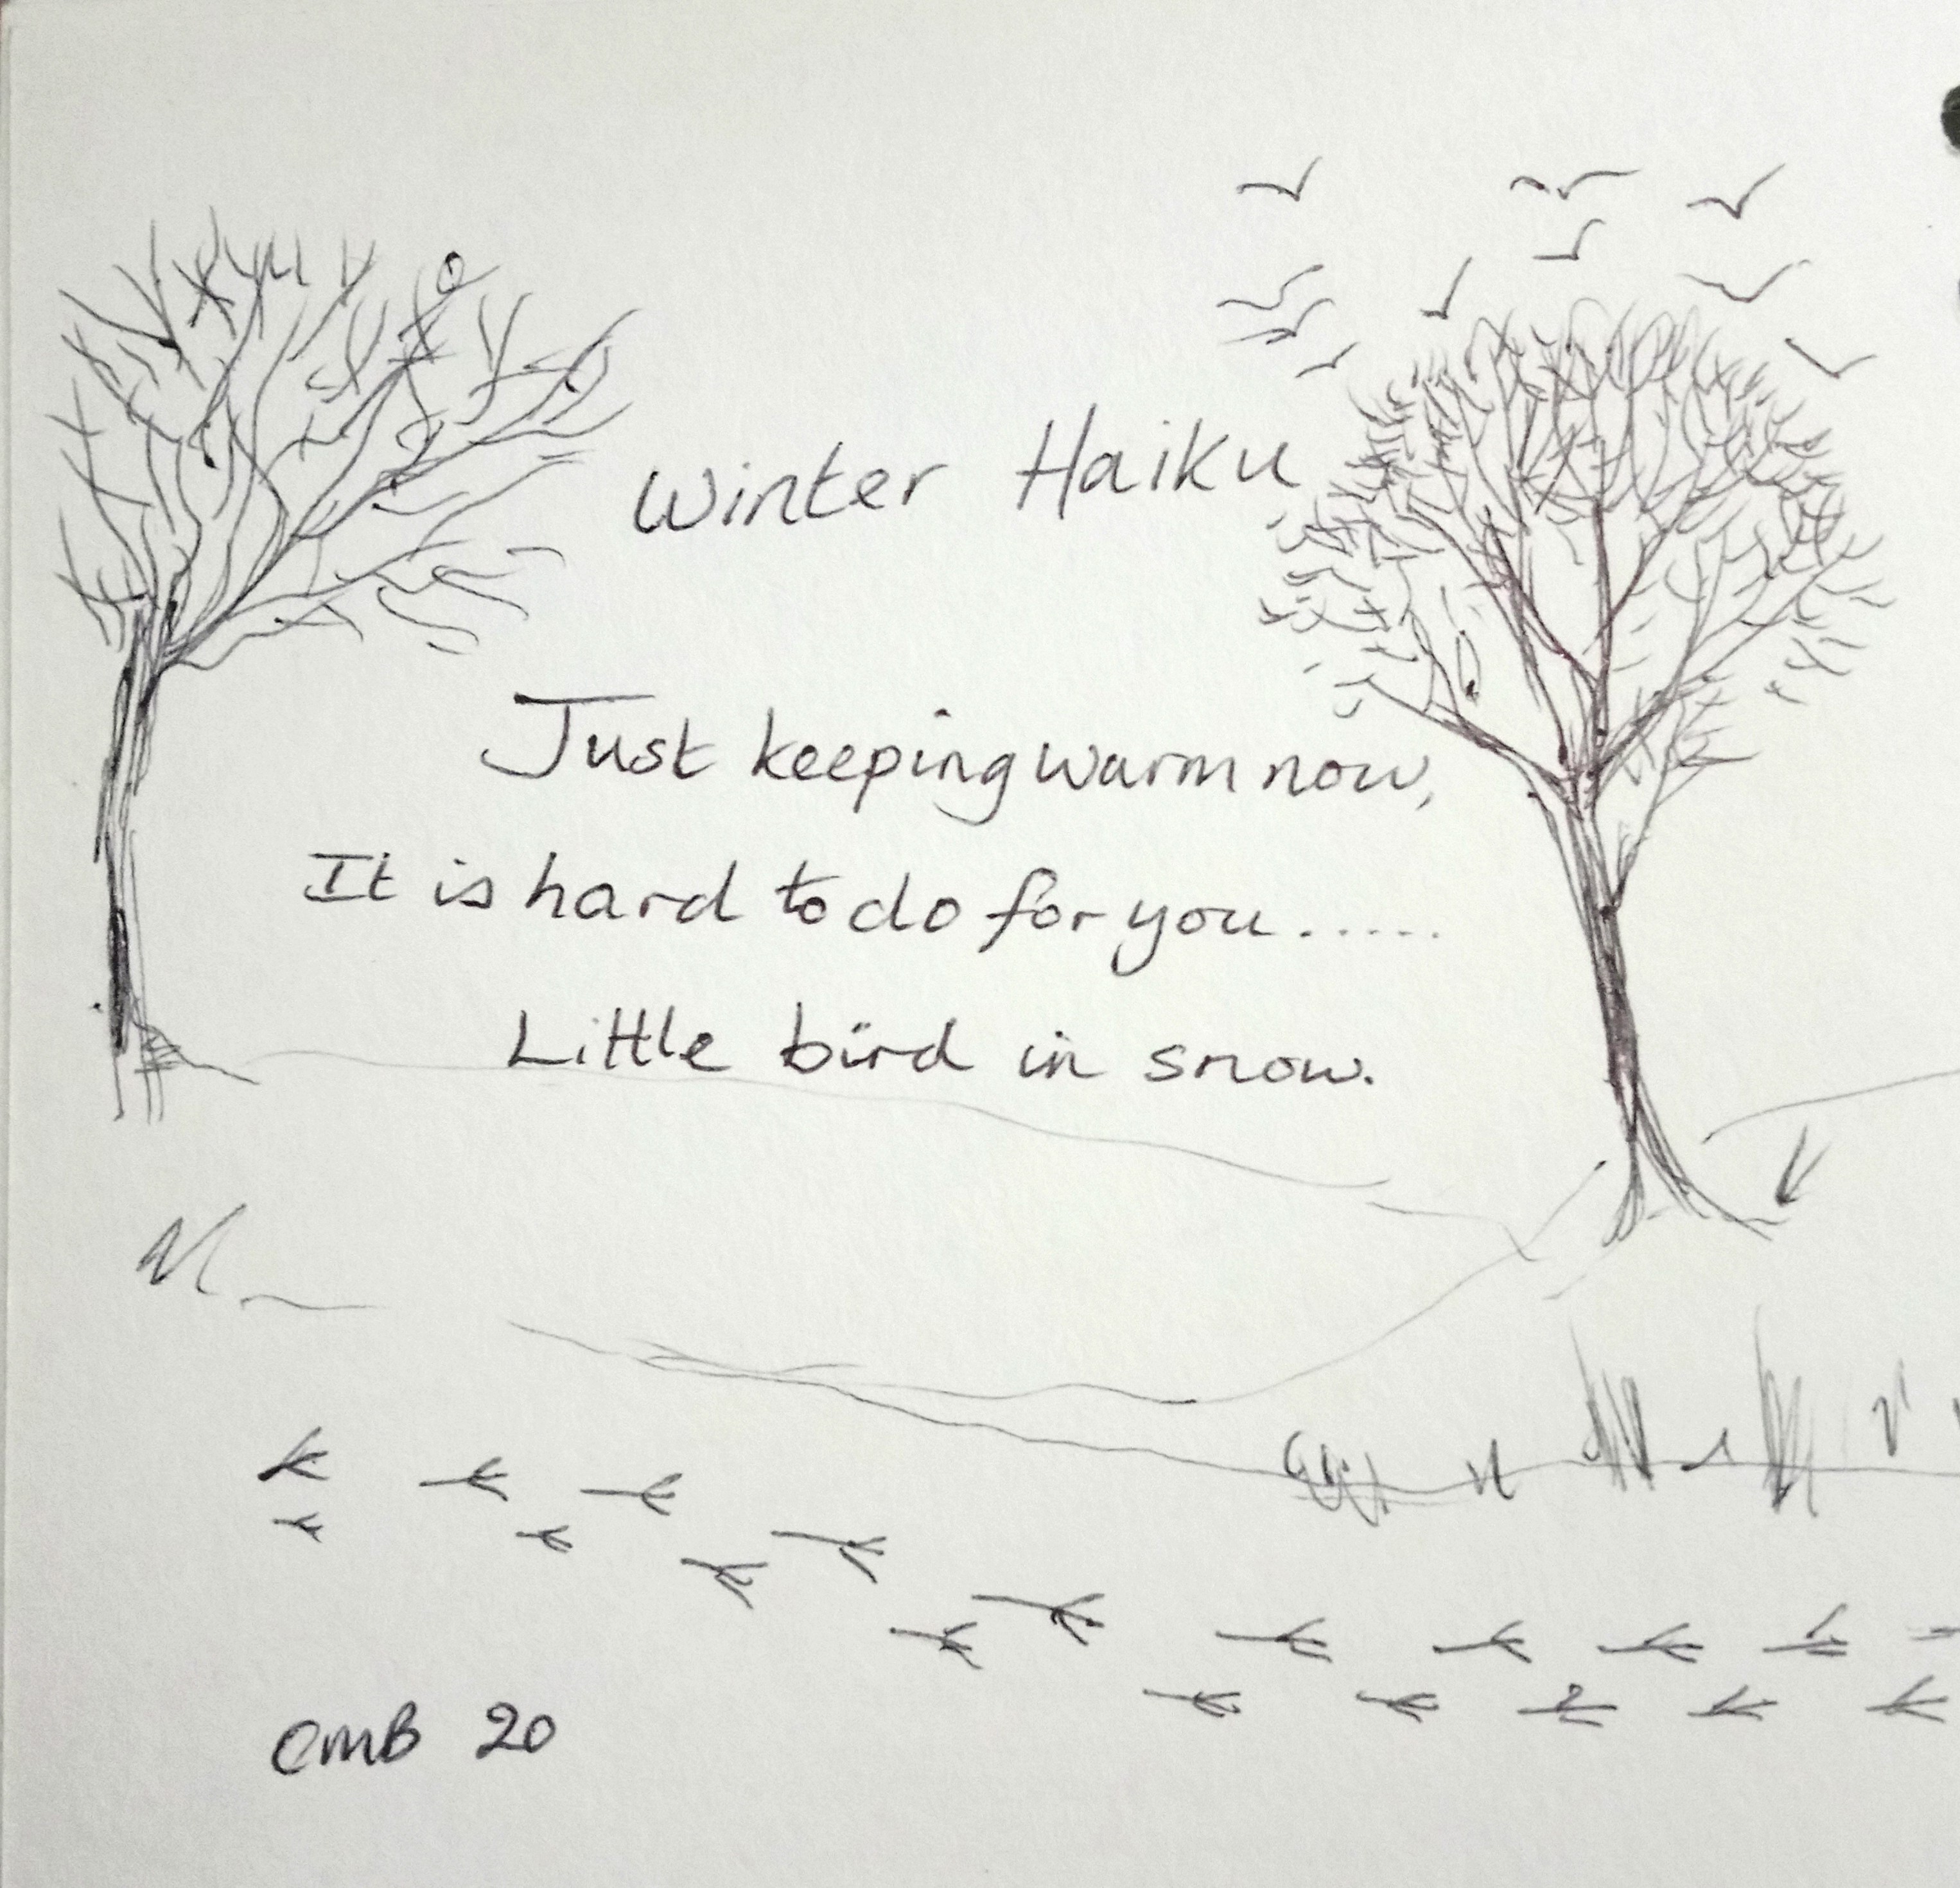 Winter Haiku
Just keeping warm now,
It is hard to do for you......
Little bird in snow.
CMB 20